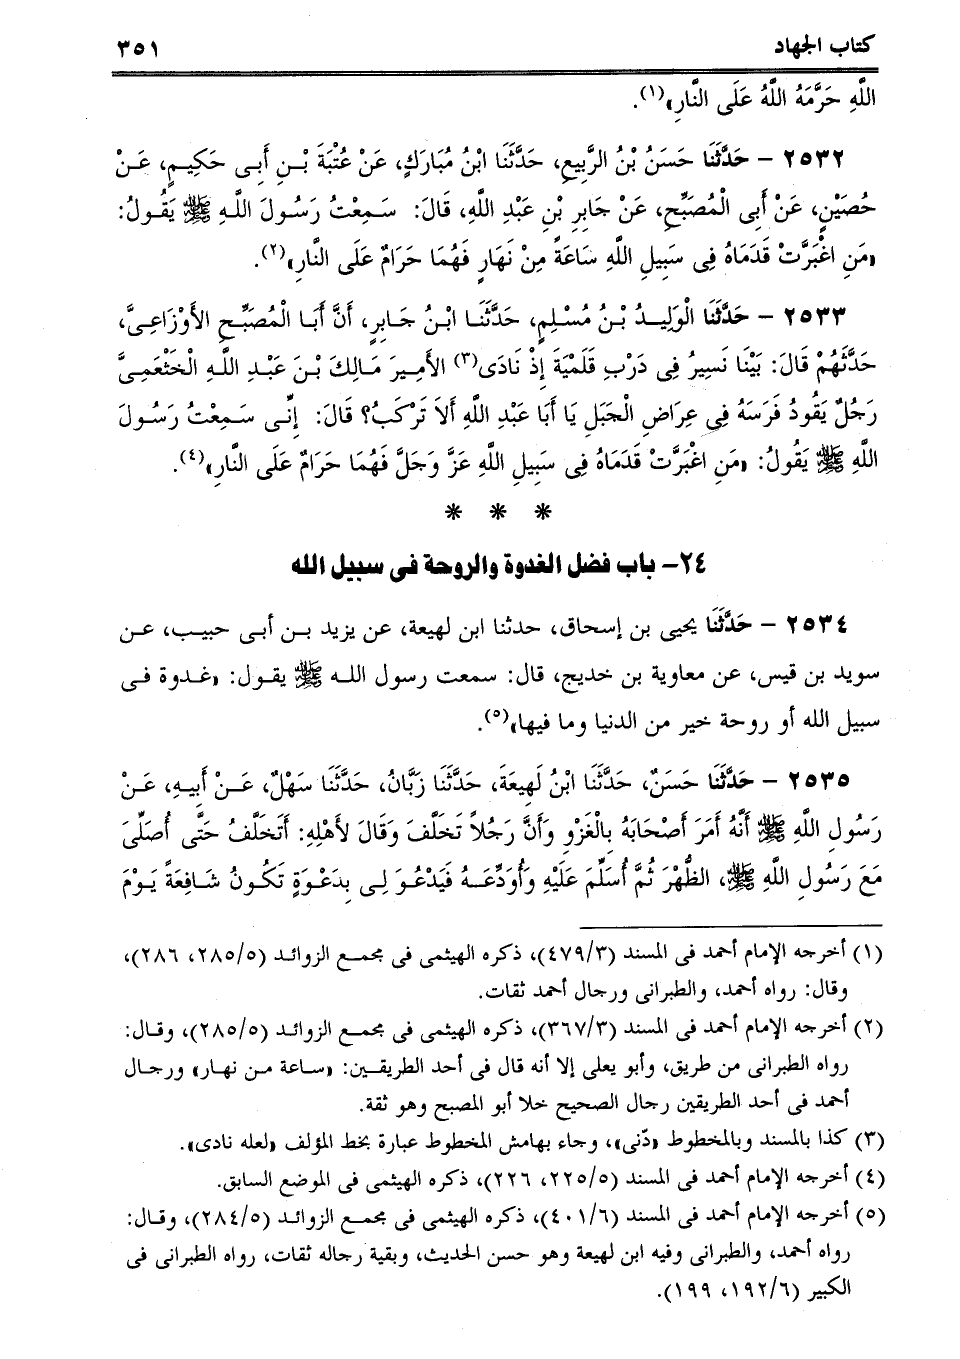 كتاب الجهاد ٣٥١
اللَّهِ حَرَّمَهُ اللَّهُ عَلَى النَّارِ»(١).
٢٥٣٢ – حَدَّثَنَا حَسَنُ بْنُ الرَّبِيعِ، حَدَّثَنَا ابْنُ مُبَارَكٍ، عَنْ عُتْبَةَ بْنِ أَبِى حَكِيمٍ، عَنْ
حُصَيْنٍ، عَنْ أَبِى الْمُصَبِّحِ، عَنْ جَابِرِ بْنِ عَبْدِ اللَّهِ، قَالَ: سَمِعْتُ رَسُولَ اللَّهِ ﷺ يَقُولُ:
«مَنِ اغْبَرَّتْ قَدَمَاهُ فِى سَبِيلِ اللَّهِ سَاعَةً مِنْ نَهَارٍ فَهُمَا حَرَامٌ عَلَى النَّارِ»(٢).
٢٥٣٣ – حَدَّثَنَا الْوَلِيدُ بْنُ مُسْلِمٍ، حَدَّثَنَا ابْنُ جَابِرٍ، أَنَّ أَبَا الْمُصَبِّحِ الأَوْزَاعِىَّ،
حَدَّثَهُمْ قَالَ: بَيْنَا نَسِيرُ فِى دَرْبِ قَلَمْيَةَ إِذْ نَادَى(٣) الأَمِيرَ مَالِكَ بْنَ عَبْدِ اللَّهِ الْخَثْعَمِىَّ
رَجُلٌ يَقُودُ فَرَسَهُ فِى عِرَاضِ الْجَبَلِ يَا أَبَا عَبْدِ اللَّهِ أَلاَ تَرْكَبُ؟ قَالَ: إِنِّى سَمِعْتُ رَسُولَ
اللَّهِ ﷺ يَقُولُ: «مَنِ اغْبَرَّتْ قَدَمَاهُ فِى سَبِيلِ اللَّهِ عَزَّ وَجَلَّ فَهُمَا حَرَامٌ عَلَى النَّارِ»(٤).
* * *
٢٤– باب فضل الغدوة والروحة فى سبيل الله
٢٥٣٤ – حَدَّثَنَا يحيى بن إسحاق، حدثنا ابن لهيعة، عن يزيد بن أبى حبيب، عن
سويد بن قيس، عن معاوية بن خديج، قال: سمعت رسول الله ﷺ يقول: «غدوة فى
سبيل الله أو روحة خير من الدنيا وما فيها»(٥).
٢٥٣٥ – حَدَّثَنَا حَسَنٌ، حَدَّثَنَا ابْنُ لَهِيعَةَ، حَدَّثَنَا زَبَّانُ، حَدَّثَنَا سَهْلٌ، عَنْ أَبِيهِ، عَنْ
رَسُولِ اللَّهِ ﷺ أَنَّهُ أَمَرَ أَصْحَابَهُ بِالْغَزْوِ وَأَنَّ رَجُلاً تَخَلَّفَ وَقَالَ لأَهْلِهِ: أَتَخَلَّفُ حَتَّى أُصَلِّىَ
مَعَ رَسُولِ اللَّهِ ﷺ، الظُّهْرَ ثُمَّ أُسَلِّمَ عَلَيْهِ وَأُوَدِّعَهُ فَيَدْعُوَ لِى بِدَعْوَةٍ تَكُونُ شَافِعَةً يَوْمَ
(١) أخرجه الإمام أحمد فى المسند (٤٧٩/٣)، ذكره الهيثمى فى مجمع الزوائد (٢٨٥/٥، ٢٨٦)،
وقال: رواه أحمد، والطبرانى ورجال أحمد ثقات.
(٢) أخرجه الإمام أحمد فى المسند (٣٦٧/٣)، ذكره الهيثمى فى مجمع الزوائد (٢٨٥/٥)، وقال:
رواه الطبرانى من طريق، وأبو يعلى إلا أنه قال فى أحد الطريقين: «ساعة من نهار» ورجال
أحمد فى أحد الطريقين رجال الصحيح خلا أبو المصبح وهو ثقة.
(٣) كذا بالمسند وبالمخطوط «دّنى»، وجاء بهامش المخطوط عبارة بخط المؤلف «لعله نادى».
(٤) أخرجه الإمام أحمد فى المسند (٢٢٥/٥، ٢٢٦)، ذكره الهيثمى فى الموضع السابق.
(٥) أخرجه الإمام أحمد فى المسند (٤٠١/٦)، ذكره الهيثمى فى مجمع الزوائد (٢٨٤/٥)، وقال:
رواه أحمد، والطبرانى وفيه ابن لهيعة وهو حسن الحديث، وبقية رجاله ثقات، رواه الطبرانى فى
الكبير (١٩٢/٦، ١٩٩).